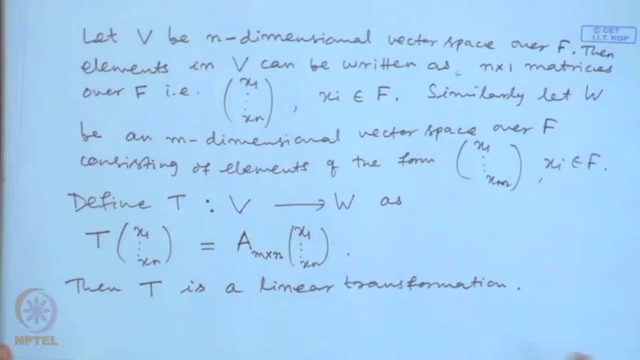 © CET
I.I.T. KGP
Let V be n-dimensional vector space over F. Then
elements in V can be written as, n×1 matrices
over F i.e. (x1 ⋮ xn), xi ∈ F. Similarly let W
be an m-dimensional vector space over F
consisting of elements of the form (x1 ⋮ xm), xi ∈ F.
Define T : V → W as
T (x1 ⋮ xn) = Am×n (x1 ⋮ xn).
Then T is a linear transformation.
NPTEL